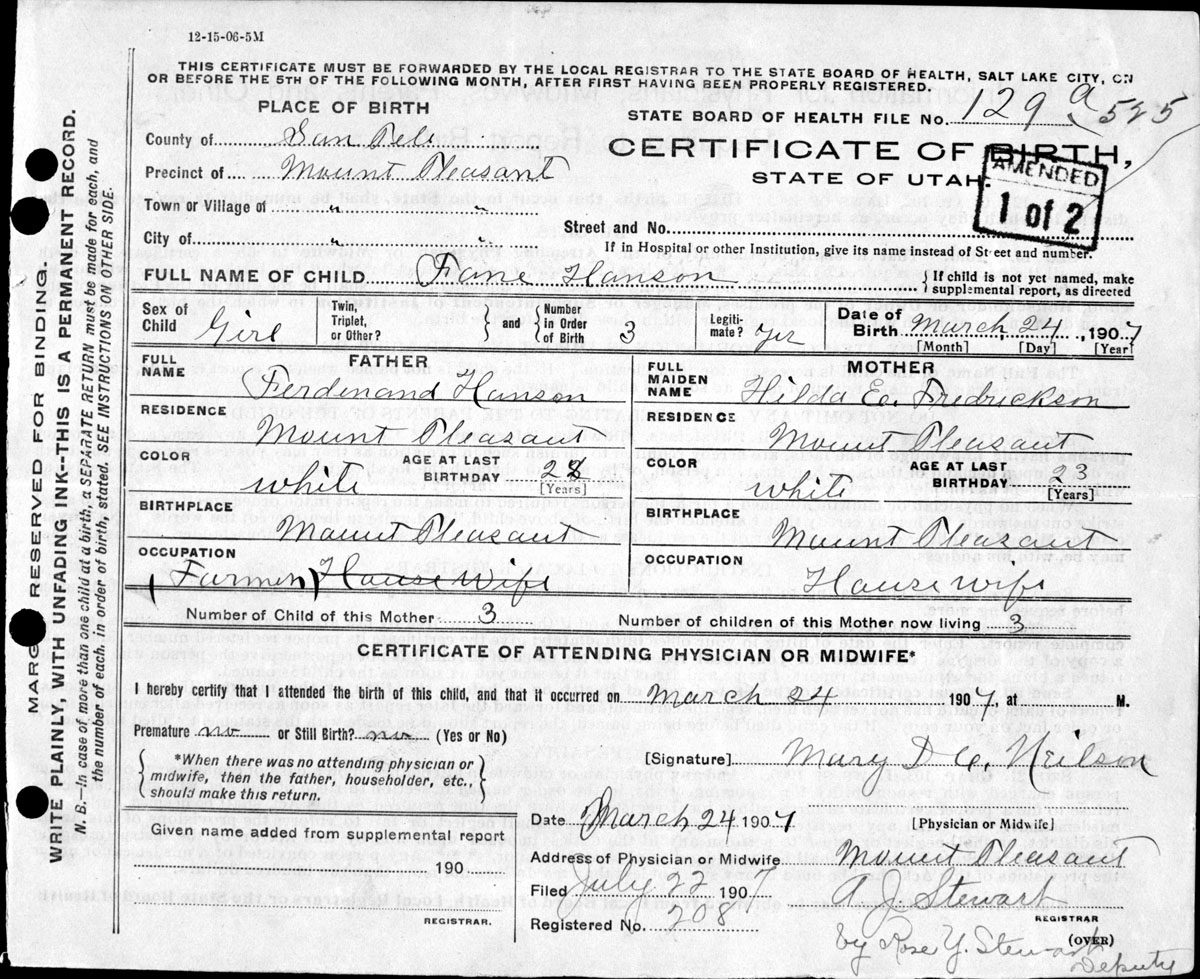 12-15-06-5M
THIS CERTIFICATE MUST BE FORWARDED BY THE LOCAL REGISTRAR TO THE STATE BOARD OF HEALTH, SALT LAKE CITY, ON
OR BEFORE THE 5TH OF THE FOLLOWING MONTH, AFTER FIRST HAVING BEEN PROPERLY REGISTERED.
PLACE OF BIRTH
STATE BOARD OF HEALTH FILE No. 129 a 525
County of San Pete
CERTIFICATE OF BIRTH,
Precinct of Mount Pleasant
STATE OF UTAH.
AMENDED
1 of 2
Town or Village of " "
Street and No.
City of " "
If in Hospital or other Institution, give its name instead of Street and number.
FULL NAME OF CHILD Hanson { If child is not yet named, make
supplemental report, as directed
Sex of Child Girl
Twin, Triplet, or Other? } and { Number in Order of Birth 3
Legitimate? yes
Date of Birth March, 24, 1907
[Month] [Day] [Year]
FATHER
FULL NAME Ferdinand Hanson
RESIDENCE
Mount Pleasant
COLOR white
AGE AT LAST BIRTHDAY 28
[Years]
BIRTHPLACE
Mount Pleasant
OCCUPATION
Farmer House wife
MOTHER
FULL MAIDEN NAME Hilda Fredrickson
RESIDENCE
Mount Pleasant
COLOR white
AGE AT LAST BIRTHDAY 23
[Years]
BIRTHPLACE
Mount Pleasant
OCCUPATION
House wife
Number of Child of this Mother 3
Number of children of this Mother now living 3
CERTIFICATE OF ATTENDING PHYSICIAN OR MIDWIFE*
I hereby certify that I attended the birth of this child, and that it occurred on March 24 1907, at M.
Premature no or Still Birth? no (Yes or No)
{ *When there was no attending physician or
midwife, then the father, householder, etc.,
should make this return. }
[Signature] Mary D C. Neilson
Date March 24 1907
[Physician or Midwife]
Given name added from supplemental report
190
REGISTRAR.
Address of Physician or Midwife Mount Pleasant
Filed July 22 1907 A. J. Stewart
REGISTRAR
Registered No. 208
(OVER)
by Rose Y. Stewart
Deputy
MARGIN RESERVED FOR BINDING.
WRITE PLAINLY, WITH UNFADING INK--THIS IS A PERMANENT RECORD.
N. B.--In case of more than one child at a birth, a SEPARATE RETURN must be made for each, and
the number of each, in order of birth, stated. SEE INSTRUCTIONS ON OTHER SIDE.